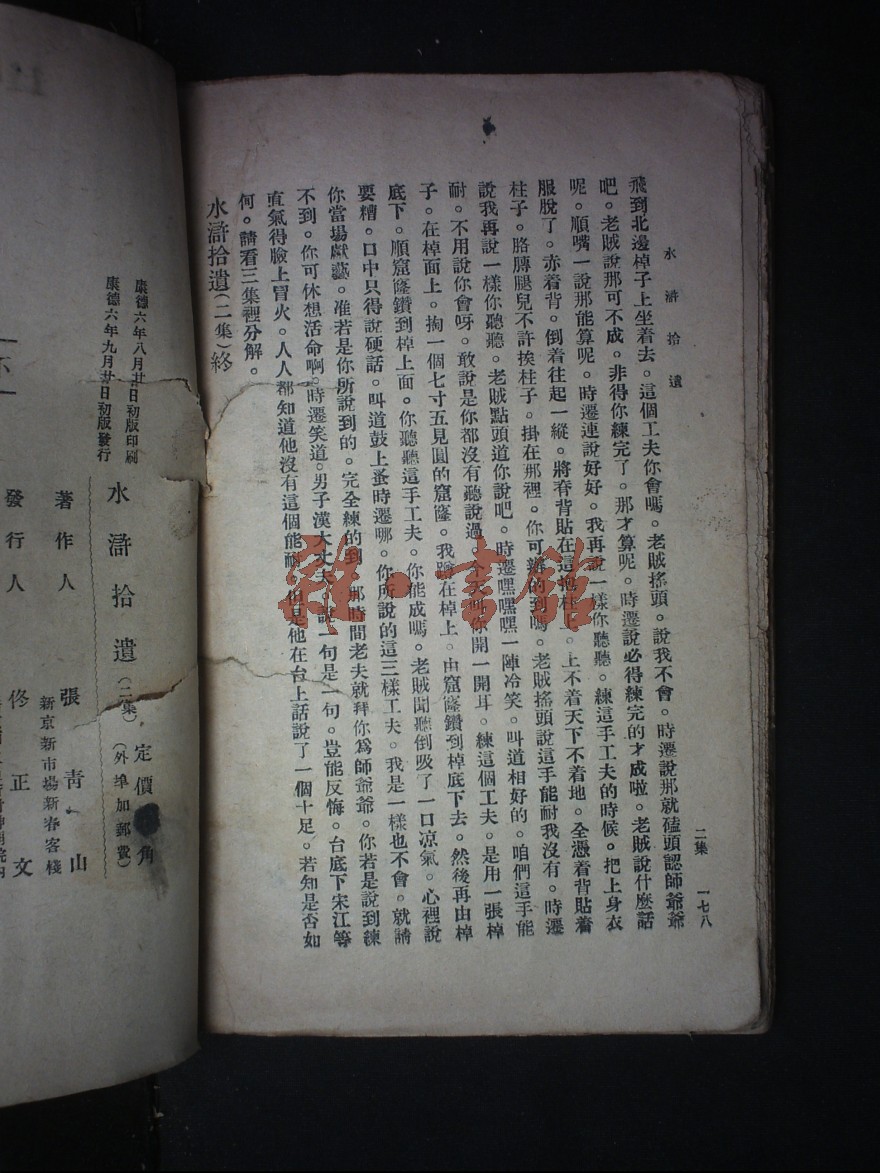 水滸拾遺
二集　一七八
飛到北邊棹子上坐着去。這個工夫你會嗎。老賊搖頭。說我不會。時遷說那就磕頭認師爺爺
吧。老賊說那可不成。非得你練完了。那才算呢。時遷說必得練完的才成啦。老賊說什麼話
呢。順嘴一說那能算呢。時遷連說好好。我再說一樣你聽聽。練這手工夫的時候。把上身衣
服脫了。赤着背。倒着往起一縱。將脊背貼在這抱柱上。上不着天下不着地。全憑着背貼着
柱子。胳膊腿兒不許挨柱子。掛在那裡。你可辦的到嗎。老賊搖頭說這手能耐我沒有。時遷
說我再說一樣你聽聽。老賊點頭道你說吧。時遷嘿嘿嘿一陣冷笑。叫道相好的。咱們這手能
耐。不用說你會呀。敢說是你都沒有聽說過。今天叫你開一開耳。練這個工夫。是用一張棹
子。在棹面上。掏一個七寸五見圓的窟窿。我蹲在棹上。由窟窿鑽到棹底下去。然後再由棹
底下。順窟窿鑽到棹上面。你聽聽這手工夫。你能成嗎。老賊聞聽倒吸了一口凉氣。心裡說
要糟。口中只得說硬話。叫道鼓上蚤時遷哪。你所說的這三樣工夫。我是一樣也不會。就請
你當場獻藝。准若是你所說到的。完全練的到。那時間老夫就拜你爲師爺爺。你若是說到練
不到。你可休想活命啊。時遷笑道。男子漢大丈夫。說一句是一句。豈能反悔。台底下宋江等
直氣得臉上冒火。人人都知道他沒有這個能耐。但是他在台上話說了一個十足。若知是否如
何。請看三集裡分解。
水滸拾遺（二集）終
康德六年八月廿日初版印刷
康德六年九月廿日初版發行
水滸拾遺（二集）定價角
（外埠加郵費）
著作人　張青山
新京新市場新春客棧
發行人　佟正文
雜·書館